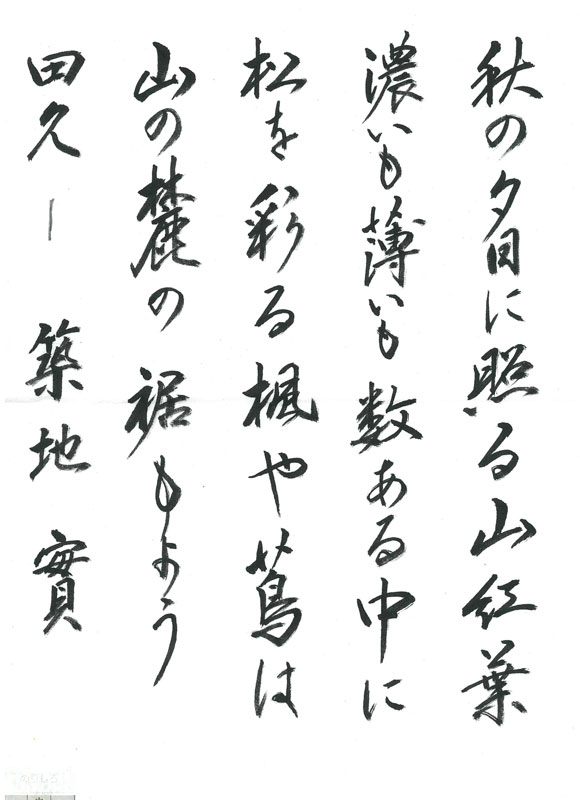 秋の夕日に照る山紅葉
濃いも薄いも数ある中に
松を彩る楓や蔦は
山の麓の裾もよう
田久一 築地 實